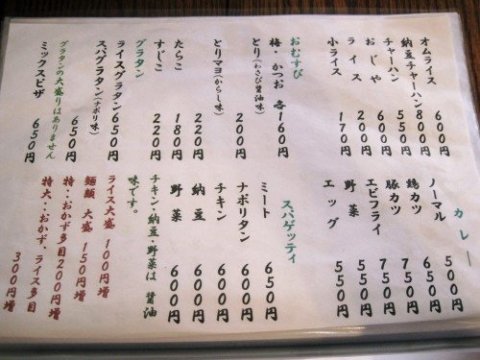 オムライス 600円
納豆チャーハン 800円
チャーハン 550円
おじや 600円
ライス 200円
小ライス 170円
おむすび
梅・かつお 各160円
とり（わさび醤油味） 200円
とりマヨ（からし味） 220円
たらこ 180円
すじこ 220円
グラタン
ライスグラタン 650円
スパグラタン（ナポリ味） 650円
グラタンの大盛りはありません
ミックスピザ 650円
カレー
ノーマル 500円
鶏カツ 650円
豚カツ 750円
エビフライ 750円
野菜 550円
エッグ 550円
スパゲッティ
ミート 650円
ナポリタン 600円
チキン 600円
納豆 600円
野菜 600円
チキン・納豆・野菜は醤油
味です。
ライス大盛 100円増
麺類 大盛 150円増
特：おかず多目 200円増
特大：おかず、ライス多目
300円増